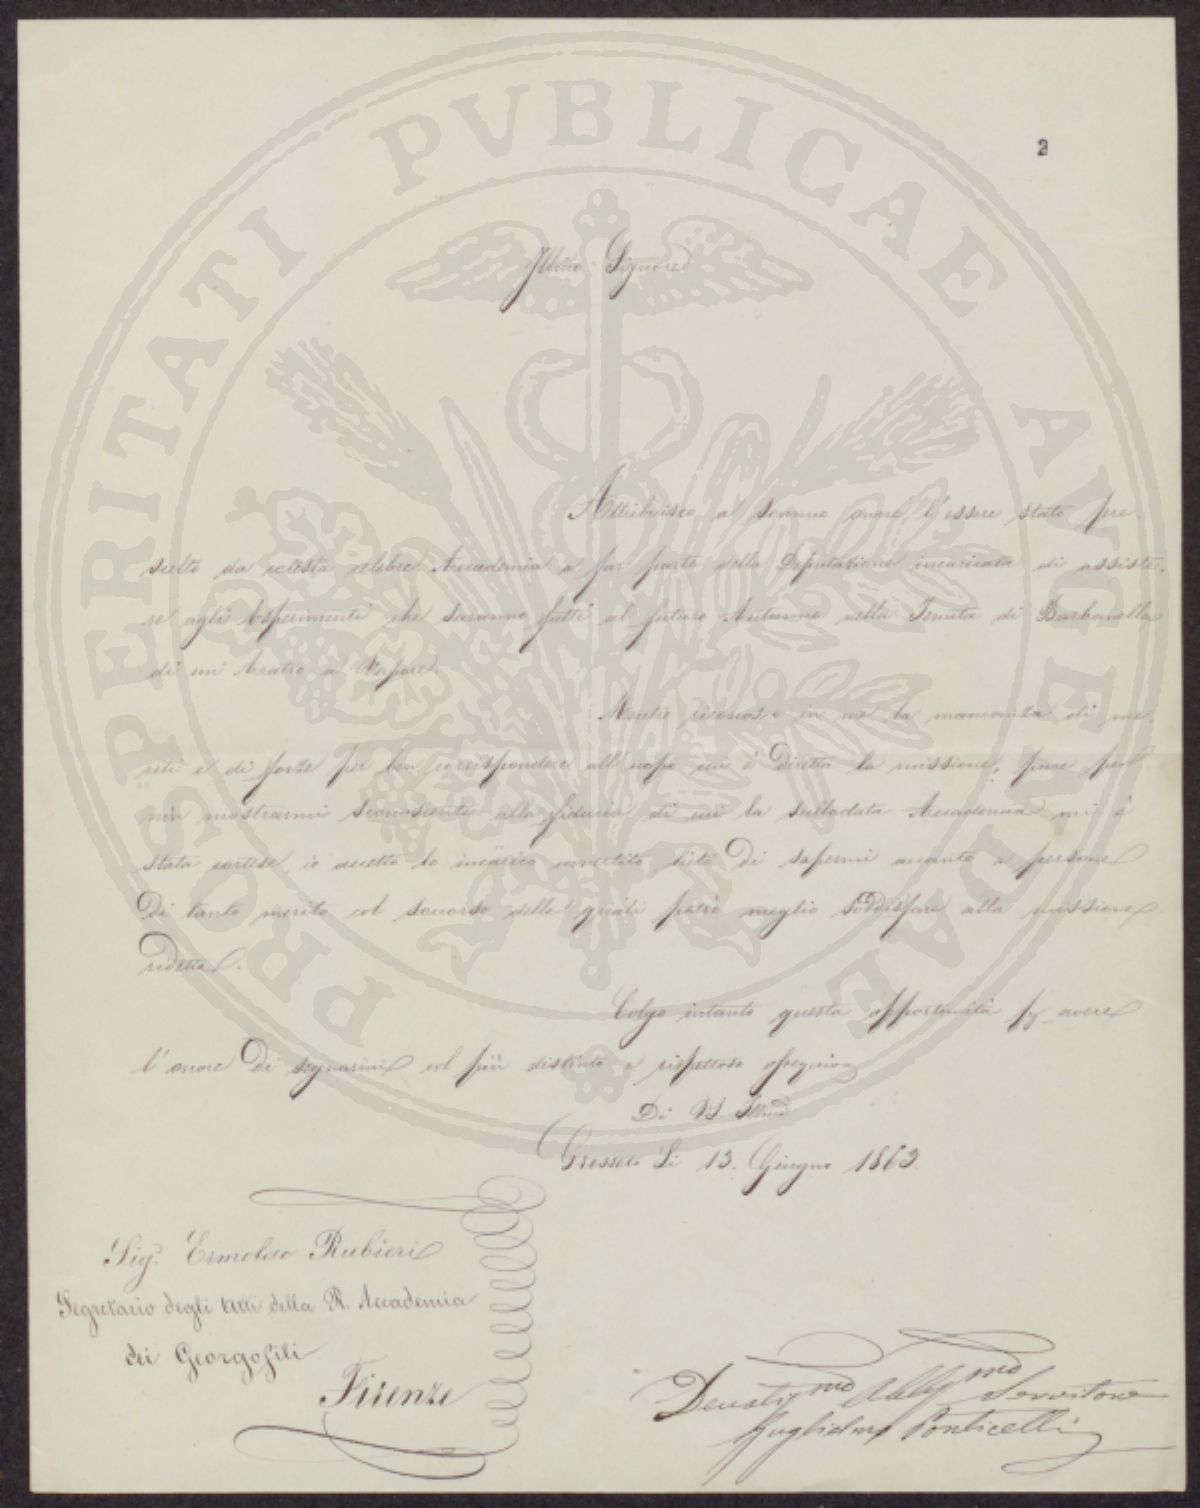 PROSPERITATI PUBLICAE AUGENDAE
2
Illmo Signore
Attribuisco a sommo onore l'essere stato pre=
scelto da codesta celebre Accademia a far parte della Deputazione incaricata di assiste=
re agli Esperimenti che saranno fatti al futuro Autunno nella Tenuta di Barbanella
di un Aratro a Vapore.
Mentre riconosco in me la mancanza di me=
riti e di forze per ben corrispondere all'uopo cui è diretta la missione, pure per
non mostrarmi sconoscente alla fiducia di cui la sullodata Accademia mi è
stata cortese, io accetto lo incarico lieto di sapermi accanto a persone
di tanto merito col soccorso delle quali potrò meglio soddisfare alla missione
ridetta.
Colgo intanto questa opportunità p avere
l'onore di segnarmi col più distinto e rispettoso ossequio
Di VS. Illma
Grosseto Li 13. Giugno 1863.
Sig. Ermolao Rubieri
Segretario degli Atti della R. Accademia
dei Georgofili
Firenze
Devotmo Obbmo Servitore
Guglielmo Ponticelli